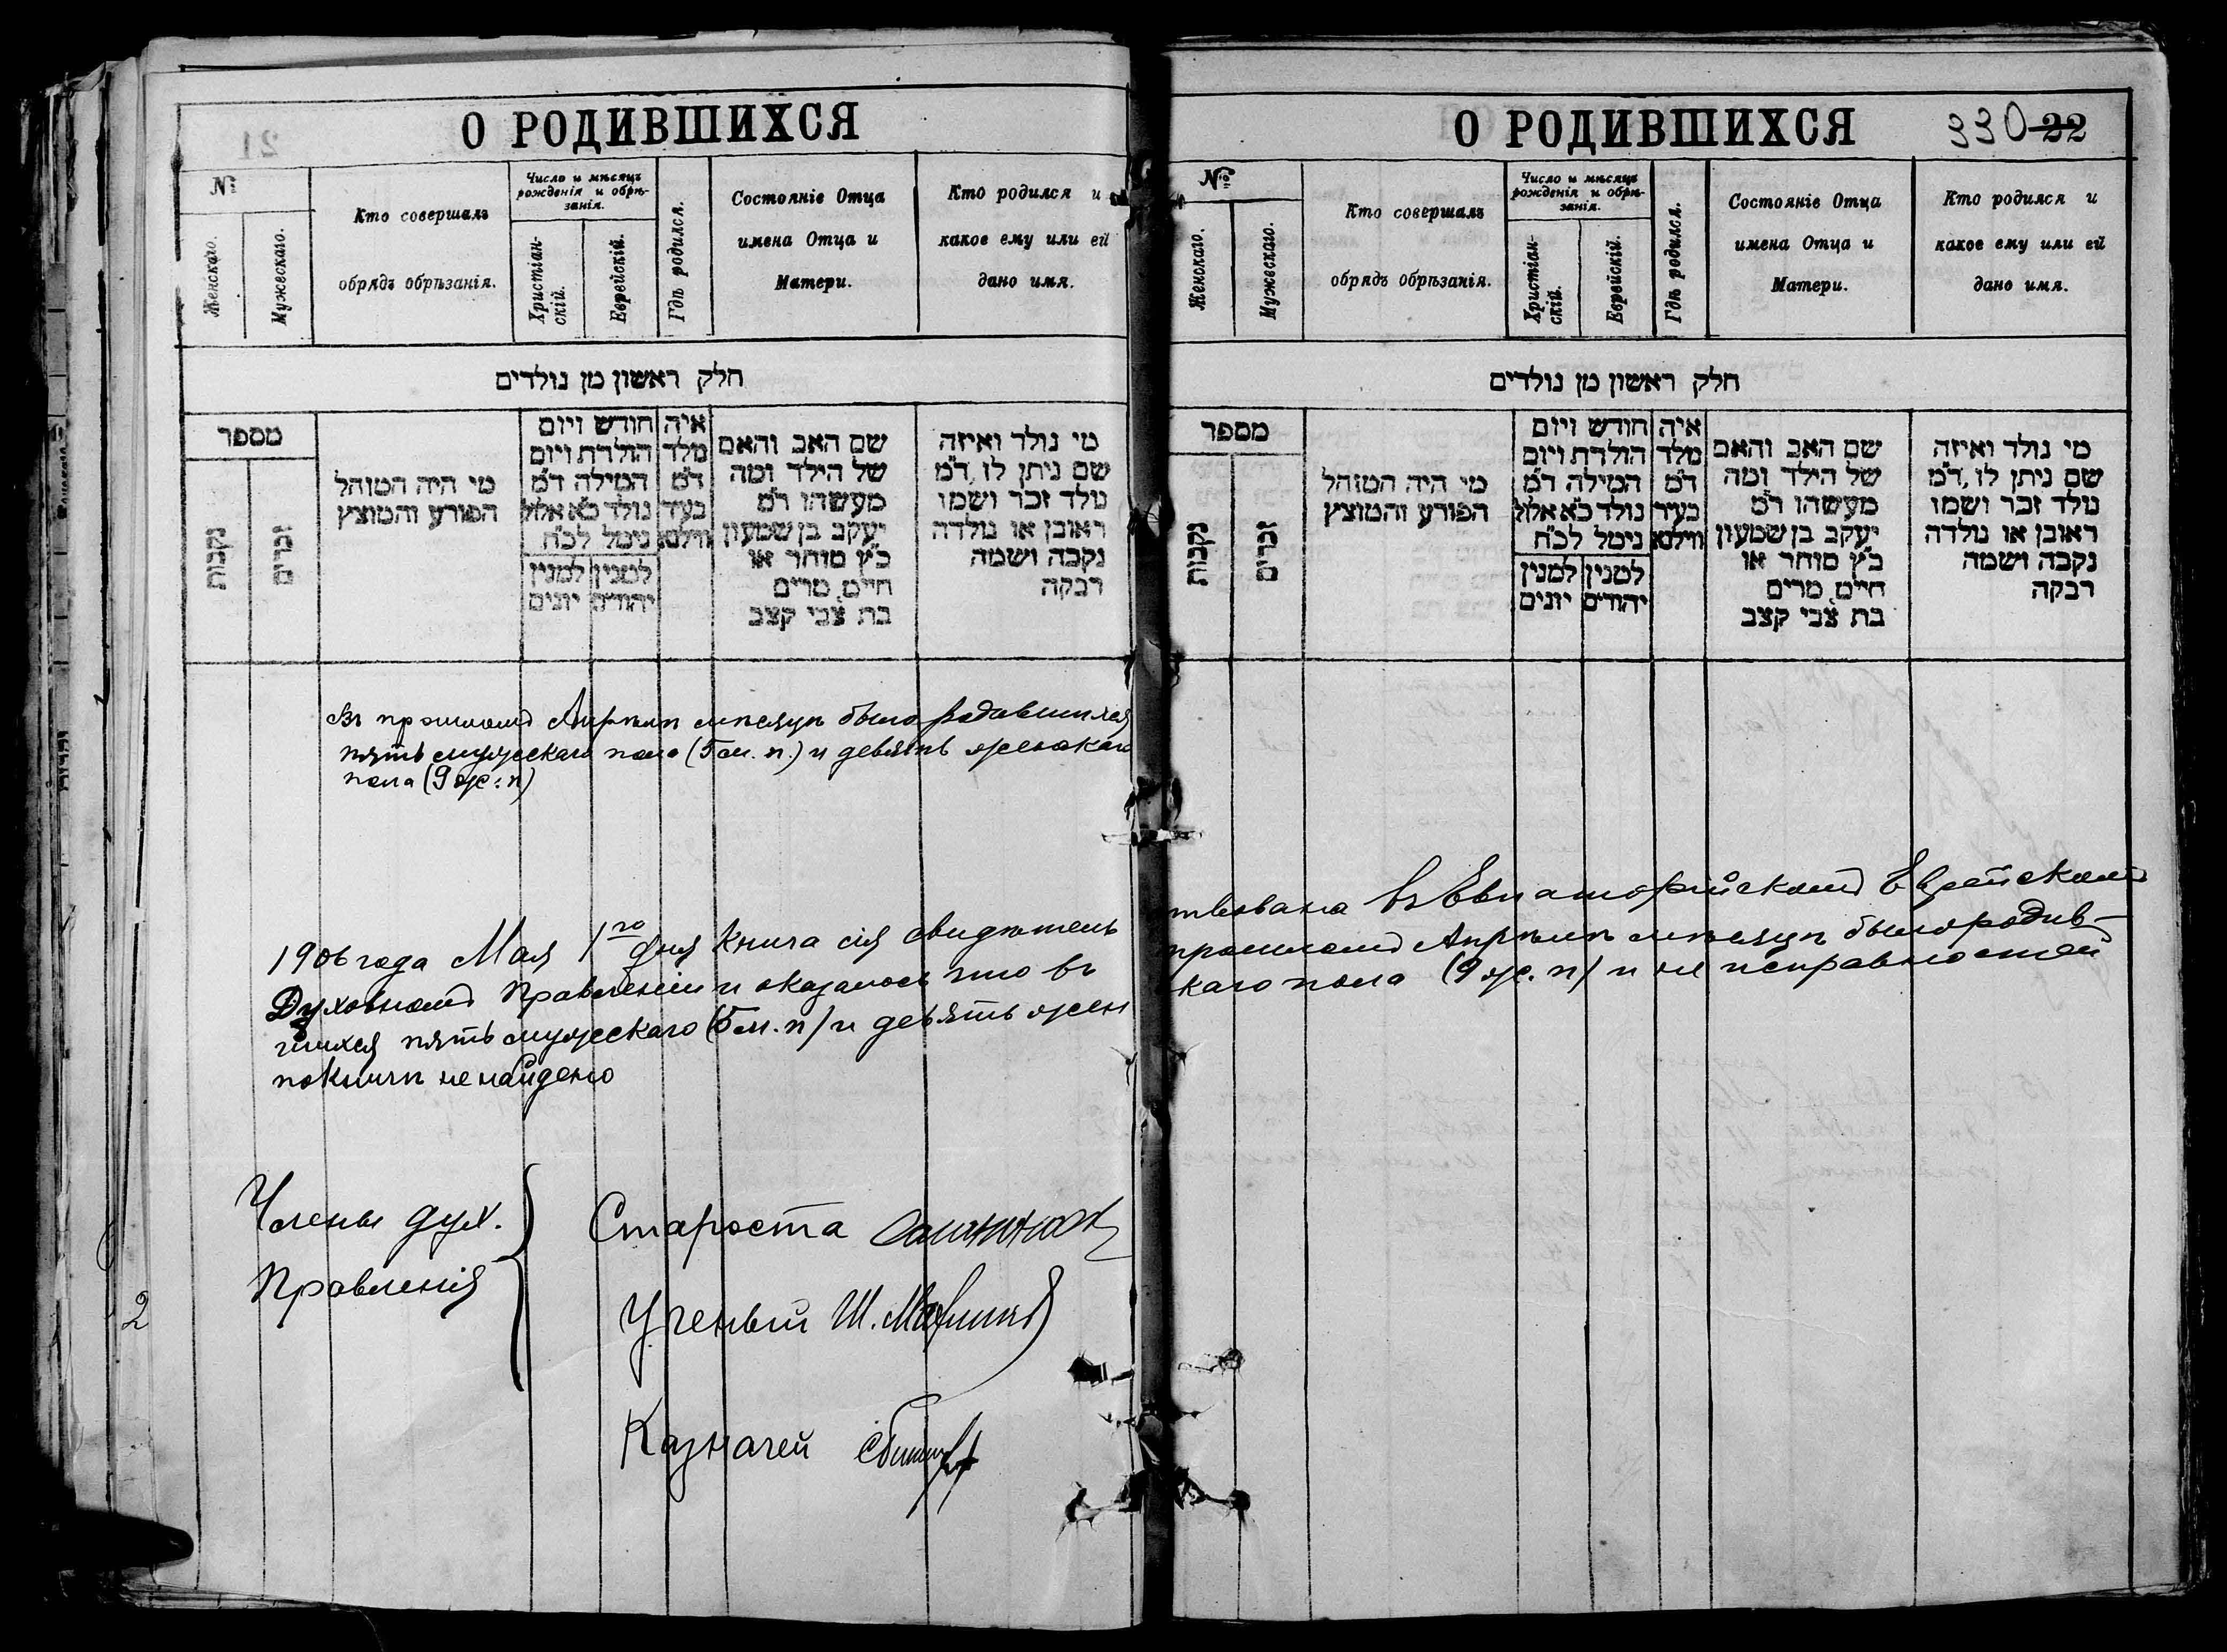 О РОДИВШИХСЯ
№
Женскаго.
Мужескаго.
Кто совершалъ
обрядъ обрѣзанія.
Число и мѣсяцъ
рожденія и обрѣ-
занія.
Христіан-
скій.
Еврейскій.
Гдѣ родился.
Состояніе Отца
имена Отца и
Матери.
Кто родился и
какое ему или ей
дано имя.
חלק ראשון מן נולדים
מספר
נקבות
זכרים
מי היה המוהל
הפורע והמוצץ
חודש ויום
הולדת ויום
המילה ד״מ
נולד כ״א אלול
נימל לכ״ח
למנין
יהודים
למנין
יונים
איה
מלד
ד״מ
בעיר
ווילנא
שם האב והאם
של הילד ומה
מעשהו ד״מ
יעקב בן שמעון
כ״ץ סוחר או
חי״ם, מרים
בת צבי קצב
מי נולד ואיזה
שם ניתן לו, ד״מ
נולד זכר ושמו
ראובן או נולדה
נקבה ושמה
רבקה
Въ прошломъ Апрѣлѣ мѣсяцѣ было родившихся
пять мужескаго пола (5 м. п.) и девять женскаго
пола (9 ж: п)
1906 года Мая 1го дня Книга сія свидѣтель
Духовномъ Правленіи и оказалось что въ
шихся пять мужескаго (5 м. п) и девять жен
по книгѣ не найдено
Члены дух.
Правленія
Староста
Ученый Ш.
Казначей
2
О РОДИВШИХСЯ
330 22
№
Женскаго.
Мужескаго.
Кто совершалъ
обрядъ обрѣзанія.
Число и мѣсяцъ
рожденія и обрѣ-
занія.
Христіан-
скій.
Еврейскій.
Гдѣ родился.
Состояніе Отца
имена Отца и
Матери.
Кто родился и
какое ему или ей
дано имя.
חלק ראשון מן נולדים
מספר
נקבות
זכרים
מי היה המוהל
הפורע והמוצץ
חודש ויום
הולדת ויום
המילה ד״מ
נולד כ״א אלול
נימל לכ״ח
למנין
יהודים
למנין
יונים
איה
מלד
ד״מ
בעיר
ווילנא
שם האב והאם
של הילד ומה
מעשהו ד״מ
יעקב בן שמעון
כ״ץ סוחר או
חי״ם, מרים
בת צבי קצב
מי נולד ואיזה
שם ניתן לו, ד״מ
נולד זכר ושמו
ראובן או נולדה
נקבה ושמה
רבקה
твована въ Евпаторійскомъ Еврейскомъ
прошломъ Апрѣлѣ мѣсяцѣ было родив-
каго пола (9 ж. п) и не исправностей